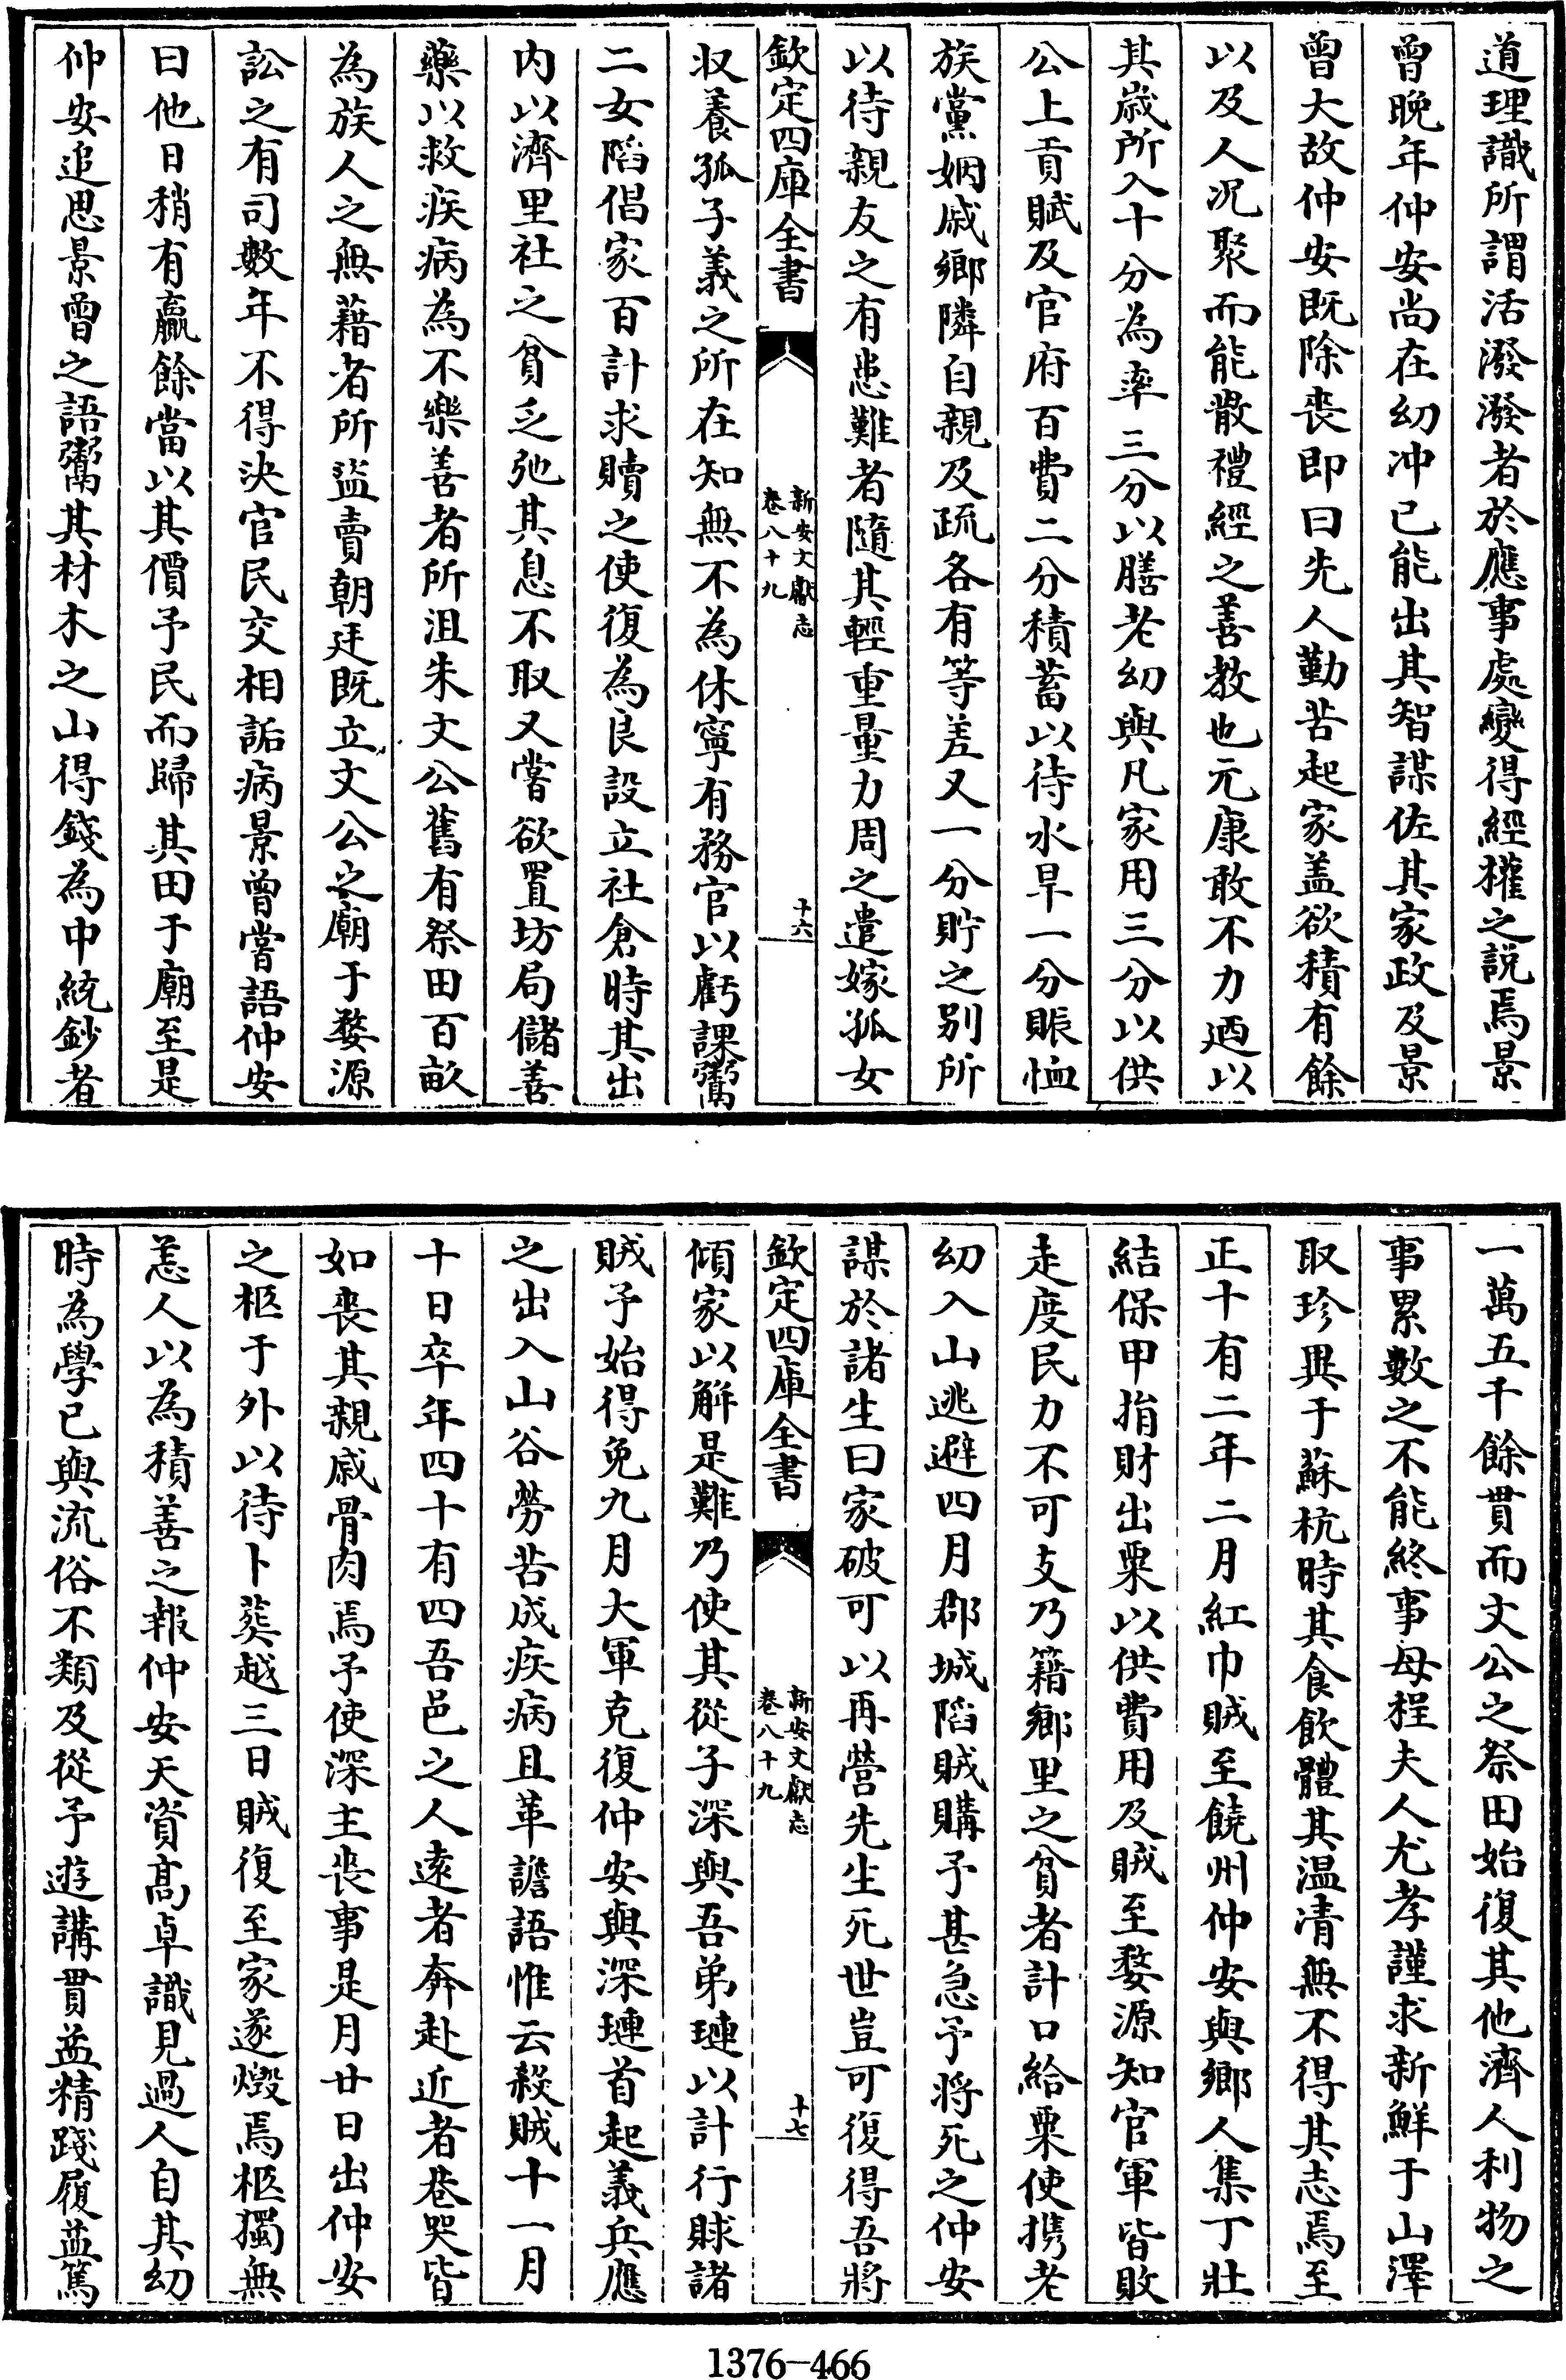 道理識所謂活潑潑者於應事處變得經權之説焉景
曾晚年仲安尚在幼冲已能出其智謀佐其家政及景
曾大故仲安既除喪即曰先人勤苦起家盖欲積有餘
以及人况聚而能散禮經之善教也元康敢不力迺以
其歲所入十分為率三分以膳老幼與凡家用三分以供
公上貢賦及官府百費二分積蓄以待水旱一分賑恤
族黨姻戚鄉隣自親及疏各有等差又一分貯之别所
以待親友之有患難者隨其輕重量力周之遣嫁孤女
欽定四庫全書
新安文獻志
卷八十九
十六
収養孤子義之所在知無不為休寧有務官以虧課鬻
二女䧟倡家百計求贖之使復為良設立社倉時其出
内以濟里社之貧乏弛其息不取又嘗欲置坊局儲善
藥以救疾病為不樂善者所沮朱文公舊有祭田百畝
為族人之無藉者所盜賣朝廷既立文公之廟于婺源
訟之有司數年不得決官民交相詬病景曾嘗語仲安
曰他日稍有贏餘當以其價予民而歸其田于廟至是
仲安追思景曾之語鬻其材木之山得錢為中統鈔者
一萬五千餘貫而文公之祭田始復其他濟人利物之
事累數之不能終事母程夫人尤孝謹求新鮮于山澤
取珍異于蘇杭時其食飲體其温凊無不得其志焉至
正十有二年二月紅巾賊至饒州仲安與鄉人集丁壯
結保甲捐財出粟以供費用及賊至婺源知官軍皆敗
走度民力不可支乃籍鄉里之貧者計口給粟使携老
幼入山逃避四月郡城䧟賊購予甚急予將死之仲安
謀於諸生曰家破可以再營先生死世豈可復得吾將
欽定四庫全書
新安文獻志
卷八十九
十七
傾家以解是難乃使其從子深與吾弟璉以計行賕諸
賊予始得免九月大軍克復仲安與深璉首起義兵應
之出入山谷勞苦成疾病且革譫語惟云殺賊十一月
十日卒年四十有四吾邑之人遠者奔赴近者巷哭皆
如喪其親戚骨肉焉予使深主喪事是月廿日出仲安
之柩于外以待卜葬越三日賊復至家遂燬焉柩獨無
恙人以為積善之報仲安天資髙卓識見過人自其幼
時為學已與流俗不類及從予遊講貫益精踐履益篤
1376-466